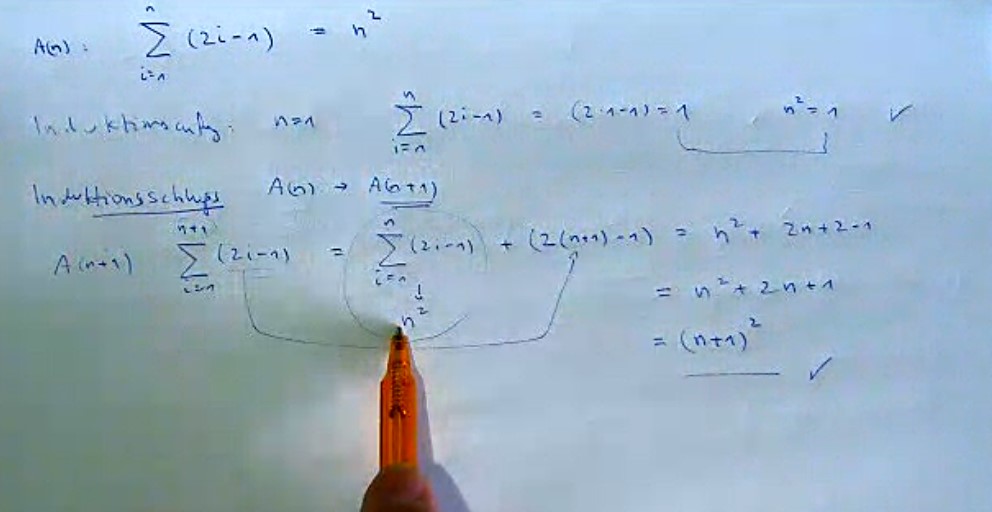 A(n): ∑_{i=1}^{n} (2i-1) = n²
Induktionsanfg: n=1 ∑_{i=1}^{n} (2i-1) = (2·1-1) = 1 n² = 1 ✓
Induktionsschluss A(n) → A(n+1)
A(n+1) ∑_{i=1}^{n+1} (2i-1) = ∑_{i=1}^{n} (2i-1) + (2(n+1)-1) = n² + 2n+2-1
↓
n²
= n² + 2n + 1
= (n+1)² ✓